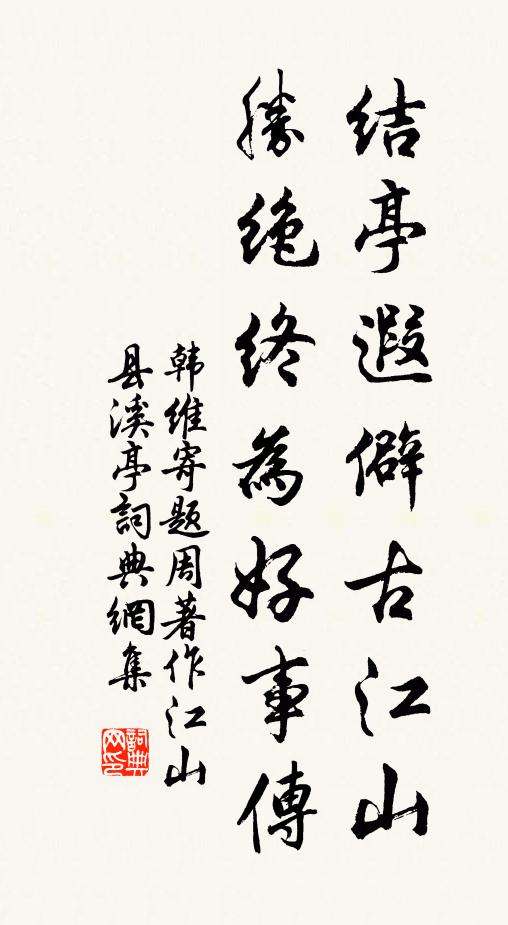 结亭遐僻古江山
勝绝终為好事傳
韩维寄题周著作江山
县溪亭詞典網集
詞典网印